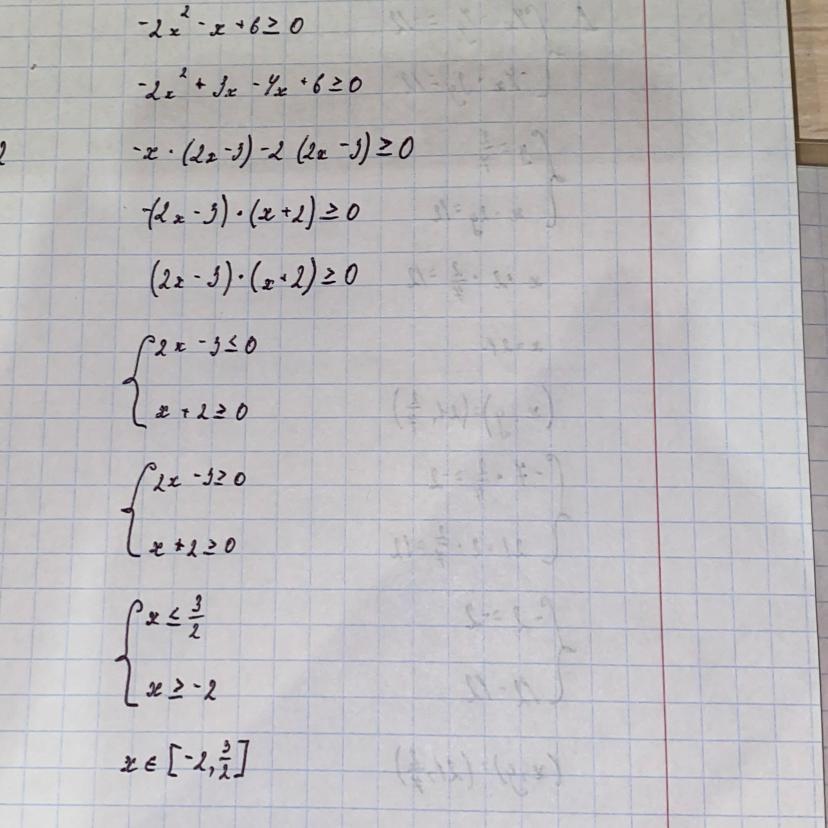 -2x² - x + 6 ≥ 0
-2x² + 3x - 4x + 6 ≥ 0
-x · (2x - 3) - 2 (2x - 3) ≥ 0
-(2x - 3) · (x + 2) ≥ 0
(2x - 3) · (x + 2) ≥ 0
{ 2x - 3 ≤ 0
x + 2 ≥ 0
{ 2x - 3 ≥ 0
x + 2 ≥ 0
{ x ≤ 3/2
x ≥ -2
x ∈ [-2, 3/2]